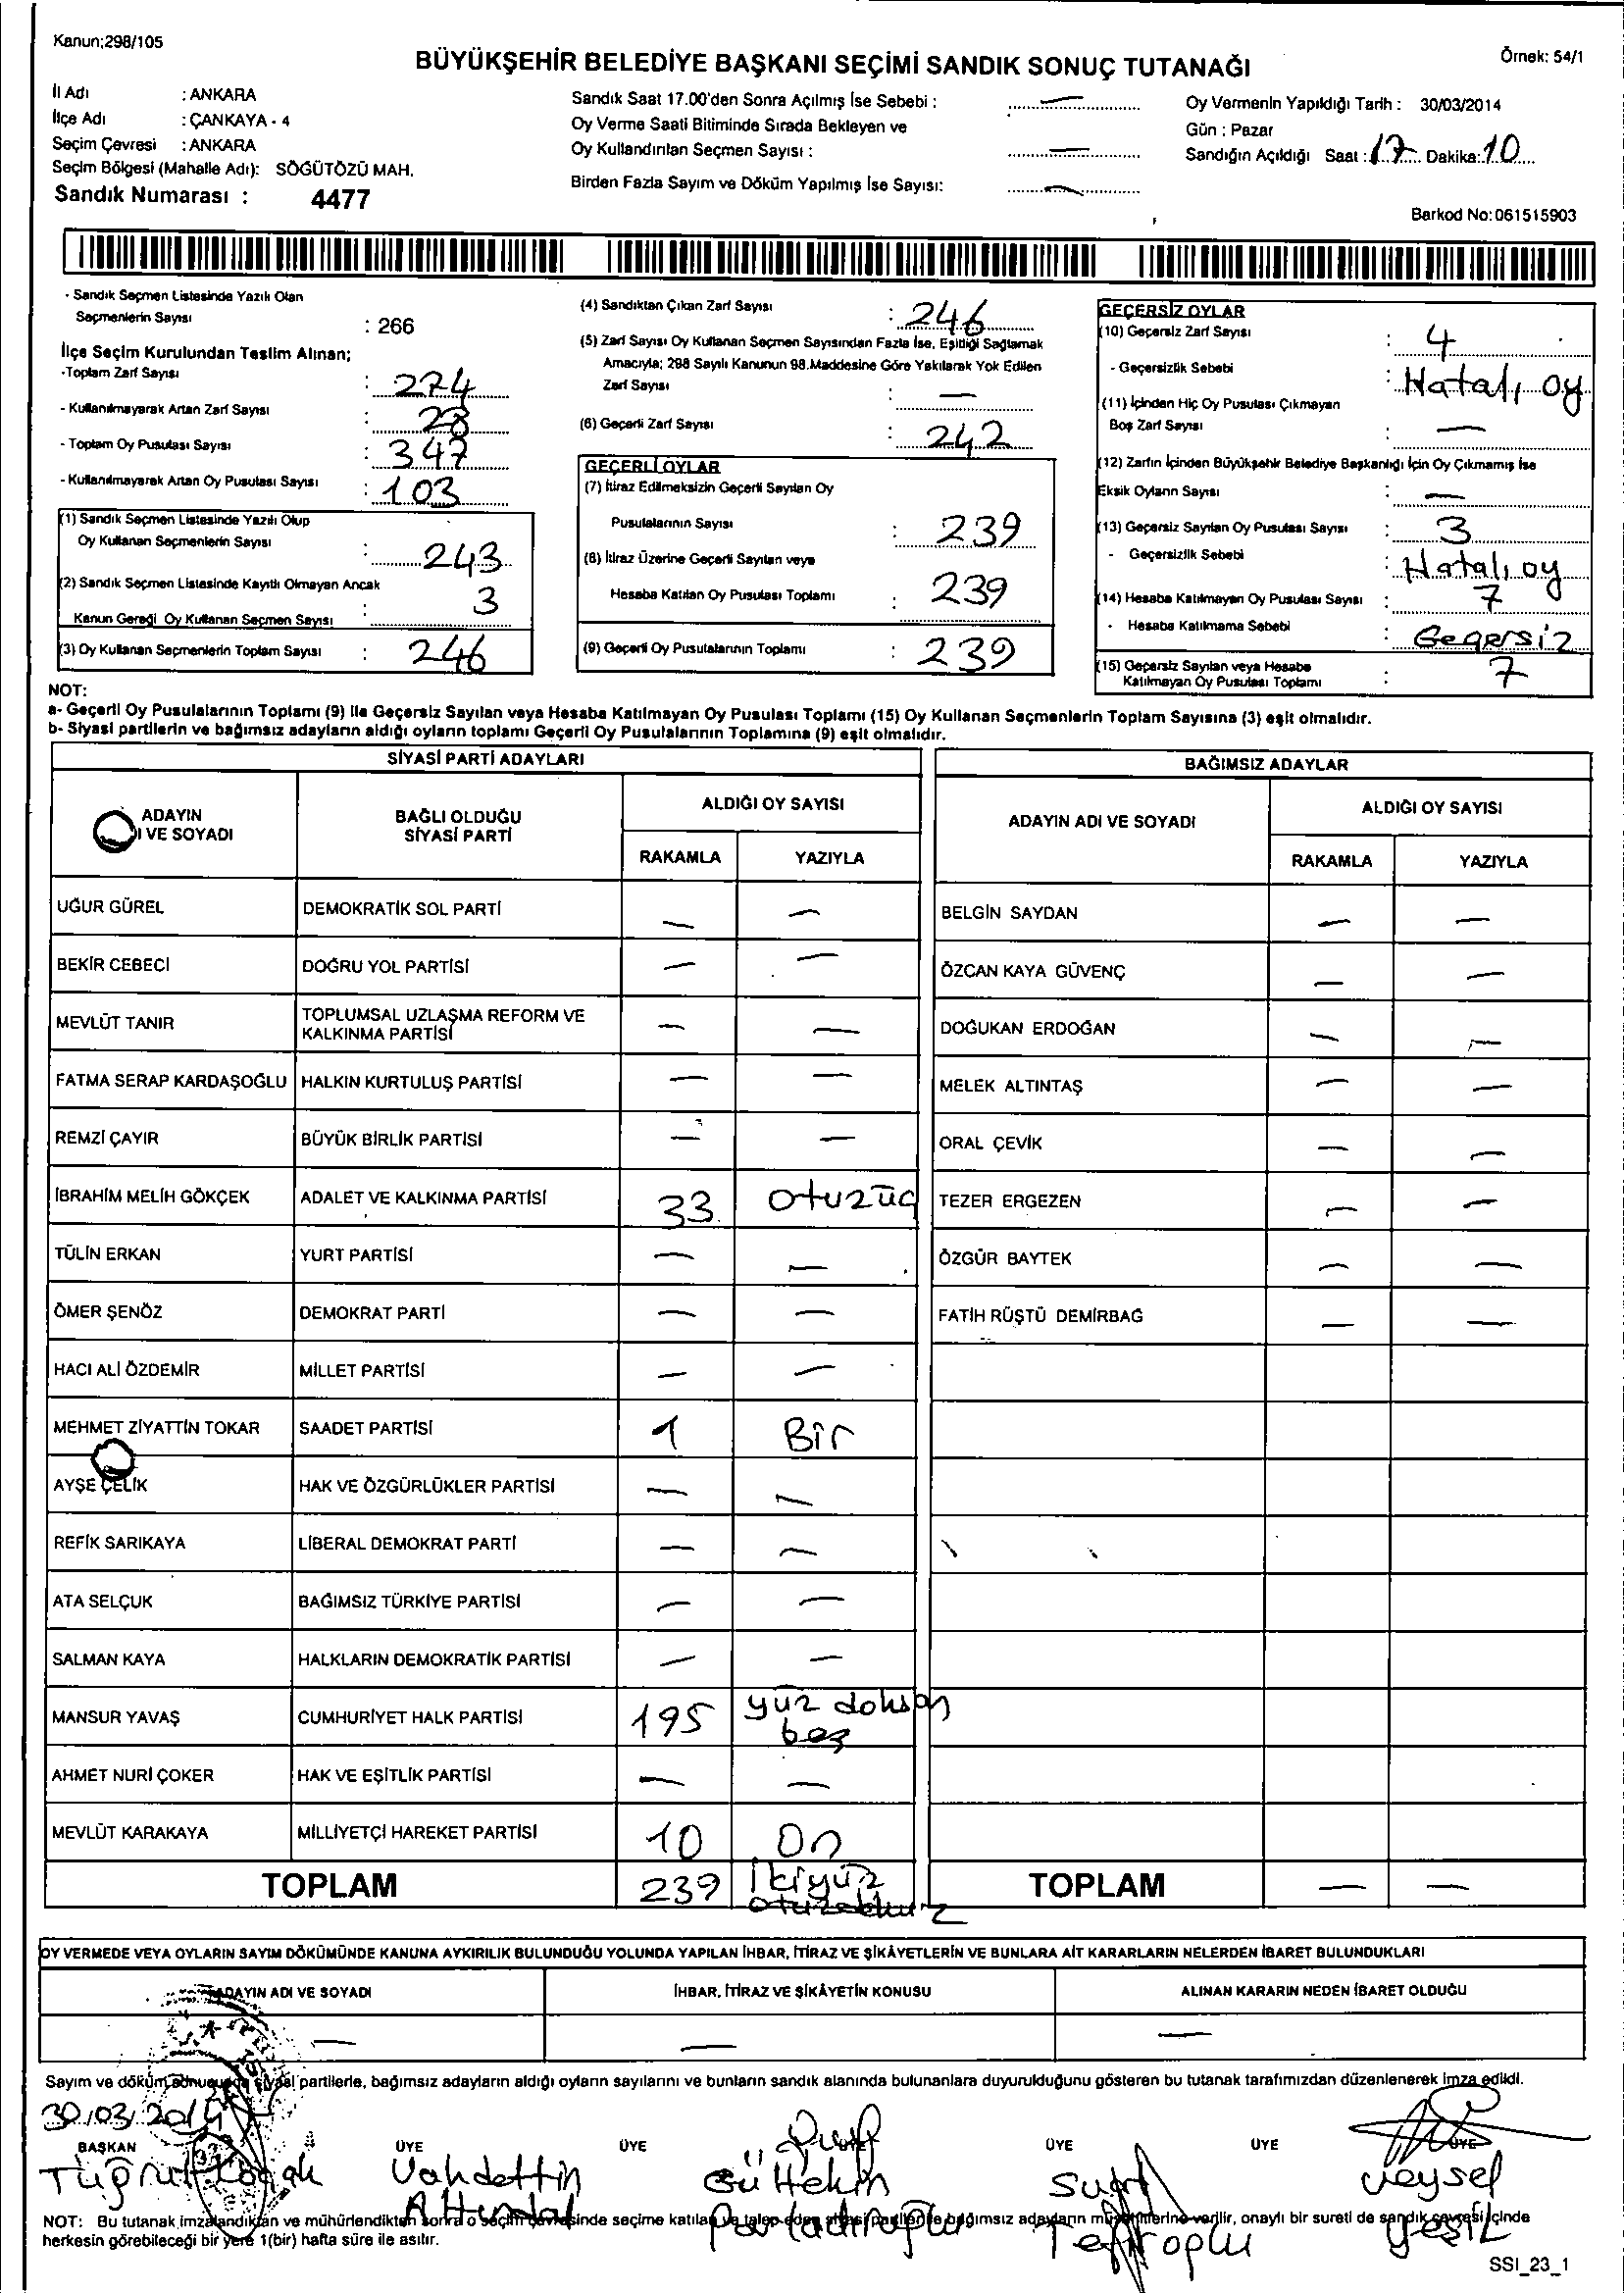 Kanun;298/105
BÜYÜKŞEHİR BELEDİYE BAŞKANI SEÇİMİ SANDIK SONUÇ TUTANAĞI
Örnek: 54/1
İl Adı : ANKARA
İlçe Adı : ÇANKAYA - 4
Seçim Çevresi : ANKARA
Seçim Bölgesi (Mahalle Adı): SÖĞÜTÖZÜ MAH.
Sandık Numarası : 4477
Sandık Saat 17.00'den Sonra Açılmış İse Sebebi : —
Oy Verme Saati Bitiminde Sırada Bekleyen ve
Oy Kullandırılan Seçmen Sayısı : —
Birden Fazla Sayım ve Döküm Yapılmış İse Sayısı: —
Oy Vermenin Yapıldığı Tarih : 30/03/2014
Gün : Pazar
Sandığın Açıldığı Saat : 17 Dakika: 10
Barkod No: 061515903
- Sandık Seçmen Listesinde Yazılı Olan
Seçmenlerin Sayısı : 266
İlçe Seçim Kurulundan Teslim Alınan;
-Toplam Zarf Sayısı : 274
- Kullanılmayarak Artan Zarf Sayısı : 28
- Toplam Oy Pusulası Sayısı : 347
- Kullanılmayarak Artan Oy Pusulası Sayısı : 103
(1) Sandık Seçmen Listesinde Yazılı Olup
Oy Kullanan Seçmenlerin Sayısı : 243
(2) Sandık Seçmen Listesinde Kayıtlı Olmayan Ancak
Kanun Gereği Oy Kullanan Seçmen Sayısı : 3
(3) Oy Kullanan Seçmenlerin Toplam Sayısı : 246
(4) Sandıktan Çıkan Zarf Sayısı : 246
(5) Zarf Sayısı Oy Kullanan Seçmen Sayısından Fazla İse, Eşitliği Sağlamak
Amacıyla; 298 Sayılı Kanunun 98.Maddesine Göre Yakılarak Yok Edilen
Zarf Sayısı : —
(6) Geçerli Zarf Sayısı : 242
GEÇERLİ OYLAR
(7) İtiraz Edilmeksizin Geçerli Sayılan Oy
Pusulalarının Sayısı : 239
(8) İtiraz Üzerine Geçerli Sayılan veya
Hesaba Katılan Oy Pusulası Toplamı : 239
(9) Geçerli Oy Pusulalarının Toplamı : 239
GEÇERSİZ OYLAR
(10) Geçersiz Zarf Sayısı : 4
- Geçersizlik Sebebi : Hatalı oy
(11) İçinden Hiç Oy Pusulası Çıkmayan
Boş Zarf Sayısı : —
(12) Zarfın İçinden Büyükşehir Belediye Başkanlığı İçin Oy Çıkmamış İse
Eksik Oyların Sayısı : —
(13) Geçersiz Sayılan Oy Pusulası Sayısı : 3
- Geçersizlik Sebebi : Hatalı oy
(14) Hesaba Katılmayan Oy Pusulası Sayısı : 7
- Hesaba Katılmama Sebebi : Geçersiz
(15) Geçersiz Sayılan veya Hesaba
Katılmayan Oy Pusulası Toplamı : 7
NOT:
a- Geçerli Oy Pusulalarının Toplamı (9) ile Geçersiz Sayılan veya Hesaba Katılmayan Oy Pusulası Toplamı (15) Oy Kullanan Seçmenlerin Toplam Sayısına (3) eşit olmalıdır.
b- Siyasi partilerin ve bağımsız adayların aldığı oyların toplamı Geçerli Oy Pusulalarının Toplamına (9) eşit olmalıdır.
SİYASİ PARTİ ADAYLARI
ADAYIN
I VE SOYADI
BAĞLI OLDUĞU
SİYASİ PARTİ
ALDIĞI OY SAYISI
RAKAMLA YAZIYLA
UĞUR GÜREL DEMOKRATİK SOL PARTİ — —
BEKİR CEBECİ DOĞRU YOL PARTİSİ — —
MEVLÜT TANIR TOPLUMSAL UZLAŞMA REFORM VE
KALKINMA PARTİSİ — —
FATMA SERAP KARDAŞOĞLU HALKIN KURTULUŞ PARTİSİ — —
REMZİ ÇAYIR BÜYÜK BİRLİK PARTİSİ — —
İBRAHİM MELİH GÖKÇEK ADALET VE KALKINMA PARTİSİ 33 otuzüç
TÜLİN ERKAN YURT PARTİSİ — —
ÖMER ŞENÖZ DEMOKRAT PARTİ — —
HACI ALİ ÖZDEMİR MİLLET PARTİSİ — —
MEHMET ZİYATTİN TOKAR SAADET PARTİSİ 1 Bir
AYŞE ÇELİK HAK VE ÖZGÜRLÜKLER PARTİSİ — —
REFİK SARIKAYA LİBERAL DEMOKRAT PARTİ — —
ATA SELÇUK BAĞIMSIZ TÜRKİYE PARTİSİ — —
SALMAN KAYA HALKLARIN DEMOKRATİK PARTİSİ — —
MANSUR YAVAŞ CUMHURİYET HALK PARTİSİ 195 yüz doksan
beş
AHMET NURİ ÇOKER HAK VE EŞİTLİK PARTİSİ — —
MEVLÜT KARAKAYA MİLLİYETÇİ HAREKET PARTİSİ 10 On
TOPLAM 239 İkiyüz
BAĞIMSIZ ADAYLAR
ADAYIN ADI VE SOYADI
ALDIĞI OY SAYISI
RAKAMLA YAZIYLA
BELGİN SAYDAN — —
ÖZCAN KAYA GÜVENÇ — —
DOĞUKAN ERDOĞAN — —
MELEK ALTINTAŞ — —
ORAL ÇEVİK — —
TEZER ERGEZEN — —
ÖZGÜR BAYTEK — —
FATİH RÜŞTÜ DEMİRBAĞ — —
TOPLAM — —
OY VERMEDE VEYA OYLARIN SAYIM DÖKÜMÜNDE KANUNA AYKIRILIK BULUNDUĞU YOLUNDA YAPILAN İHBAR, İTİRAZ VE ŞİKÂYETLERİN VE BUNLARA AİT KARARLARIN NELERDEN İBARET BULUNDUKLARI
ADAYIN ADI VE SOYADI İHBAR, İTİRAZ VE ŞİKÂYETİN KONUSU ALINAN KARARIN NEDEN İBARET OLDUĞU
— — —
Sayım ve döküm sonucunda siyasi partilerle, bağımsız adayların aldığı oyların sayılarını ve bunların sandık alanında bulunanlara duyurulduğunu gösteren bu tutanak tarafımızdan düzenlenerek imza edildi.
30/03/2014
BAŞKAN ÜYE ÜYE ÜYE ÜYE ÜYE
Tuğrul Vahdettin Gültekin Veysel
YEŞİL
NOT: Bu tutanak imzalandıktan ve mühürlendikten sonra o seçim çevresinde seçime katılan ve talep eden siyasi partilerle bağımsız adayların müşahitlerine verilir, onaylı bir sureti de sandık çevresi içinde
herkesin görebileceği bir yere 1(bir) hafta süre ile asılır.
SSI_23_1